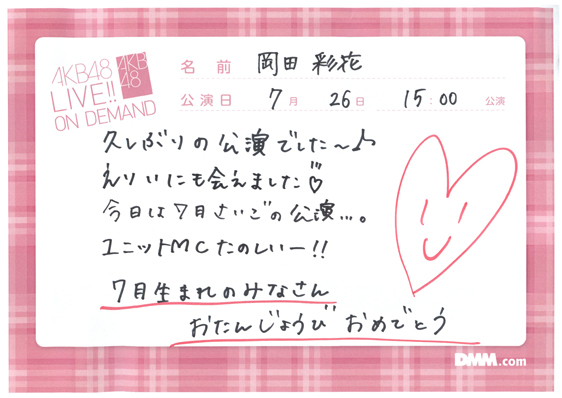 AKB48
LIVE!!
ON DEMAND
AKB
48
名前 岡田 彩花
公演日 7月 26日 15:00 公演
久しぶりの公演でした〜♪
えりいにも会えました♡
今日は7月さいごの公演…。
ユニットMCたのしいー!!
7月生まれのみなさん
おたんじょうび おめでとう
DMM.com